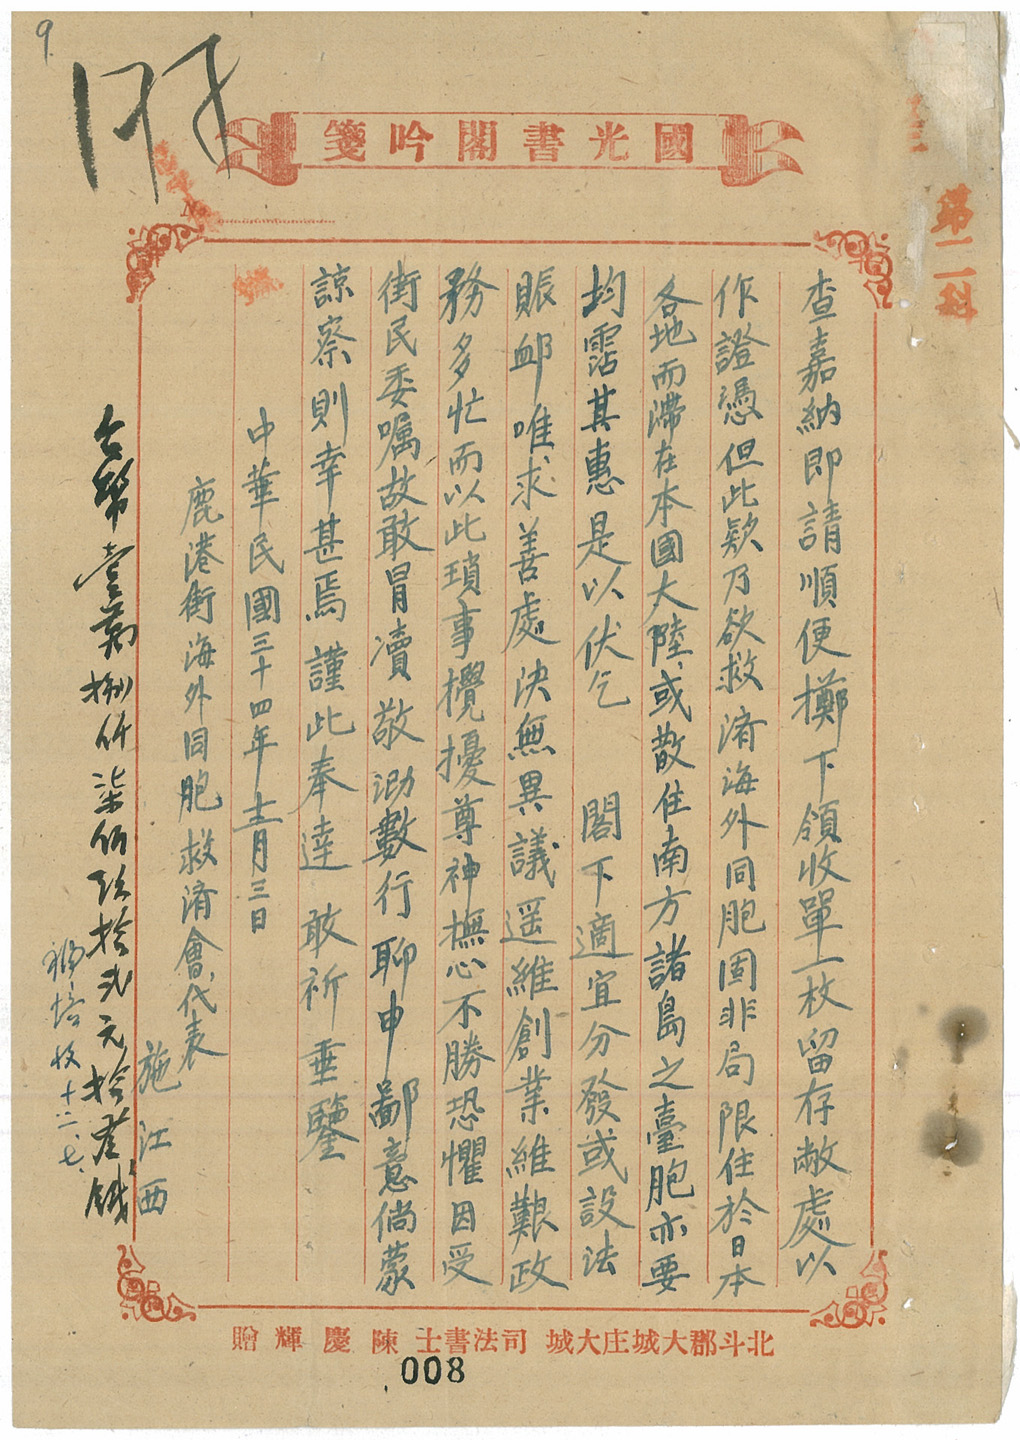 9
附
國光書閣吟箋
第二科
查嘉納即請順便擲下領收單一枚留存敝處以
作證憑但此款乃欲救濟海外同胞固非局限住於日本
各地而滯在本國大陸、或散住南方諸島之臺胞亦要
均霑其惠是以伏乞 閣下適宜分發或設法
賑卹唯求善處決無異議遥維創業維艱政
務多忙而以此瑣事攪擾尊神撫心不勝恐懼因受
街民委嘱故敢冒瀆敬泐數行聊申鄙意倘蒙
諒察則幸甚焉謹此奉達 敢祈垂鑒
中華民國三十四年十二月三日
鹿港街海外同胞救濟會、代表
施江西
台幣壹萬捌仟柒佰玖拾弍元拾叁錢
收十二、七、
北斗郡大城庄大城 司法書士 陳慶輝贈
008